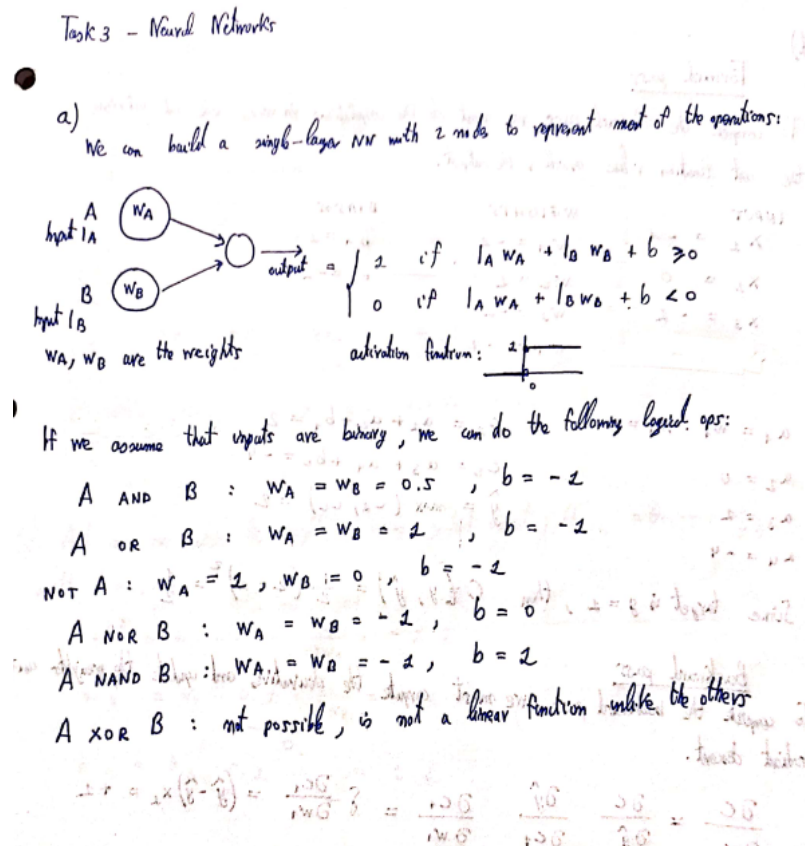 Task 3 - Neural Networks
a)
We can build a single-layer NN with 2 nodes to represent most of the operations:
A
WA
Input IA
output = { 1 if IA WA + IB WB + b ≥ 0
0 if IA WA + IB WB + b < 0
B
WB
Input IB
WA, WB are the weights
activation function: 1
0
If we assume that inputs are binary, we can do the following logical ops:
A AND B : WA = WB = 0.5 , b = -1
A OR B : WA = WB = 1 , b = -1
NOT A : WA = 1 , WB = 0 , b = -1
A NOR B : WA = WB = -1 , b = 0
A NAND B : WA = WB = -1 , b = 1
A XOR B : not possible, is not a linear function unlike the others